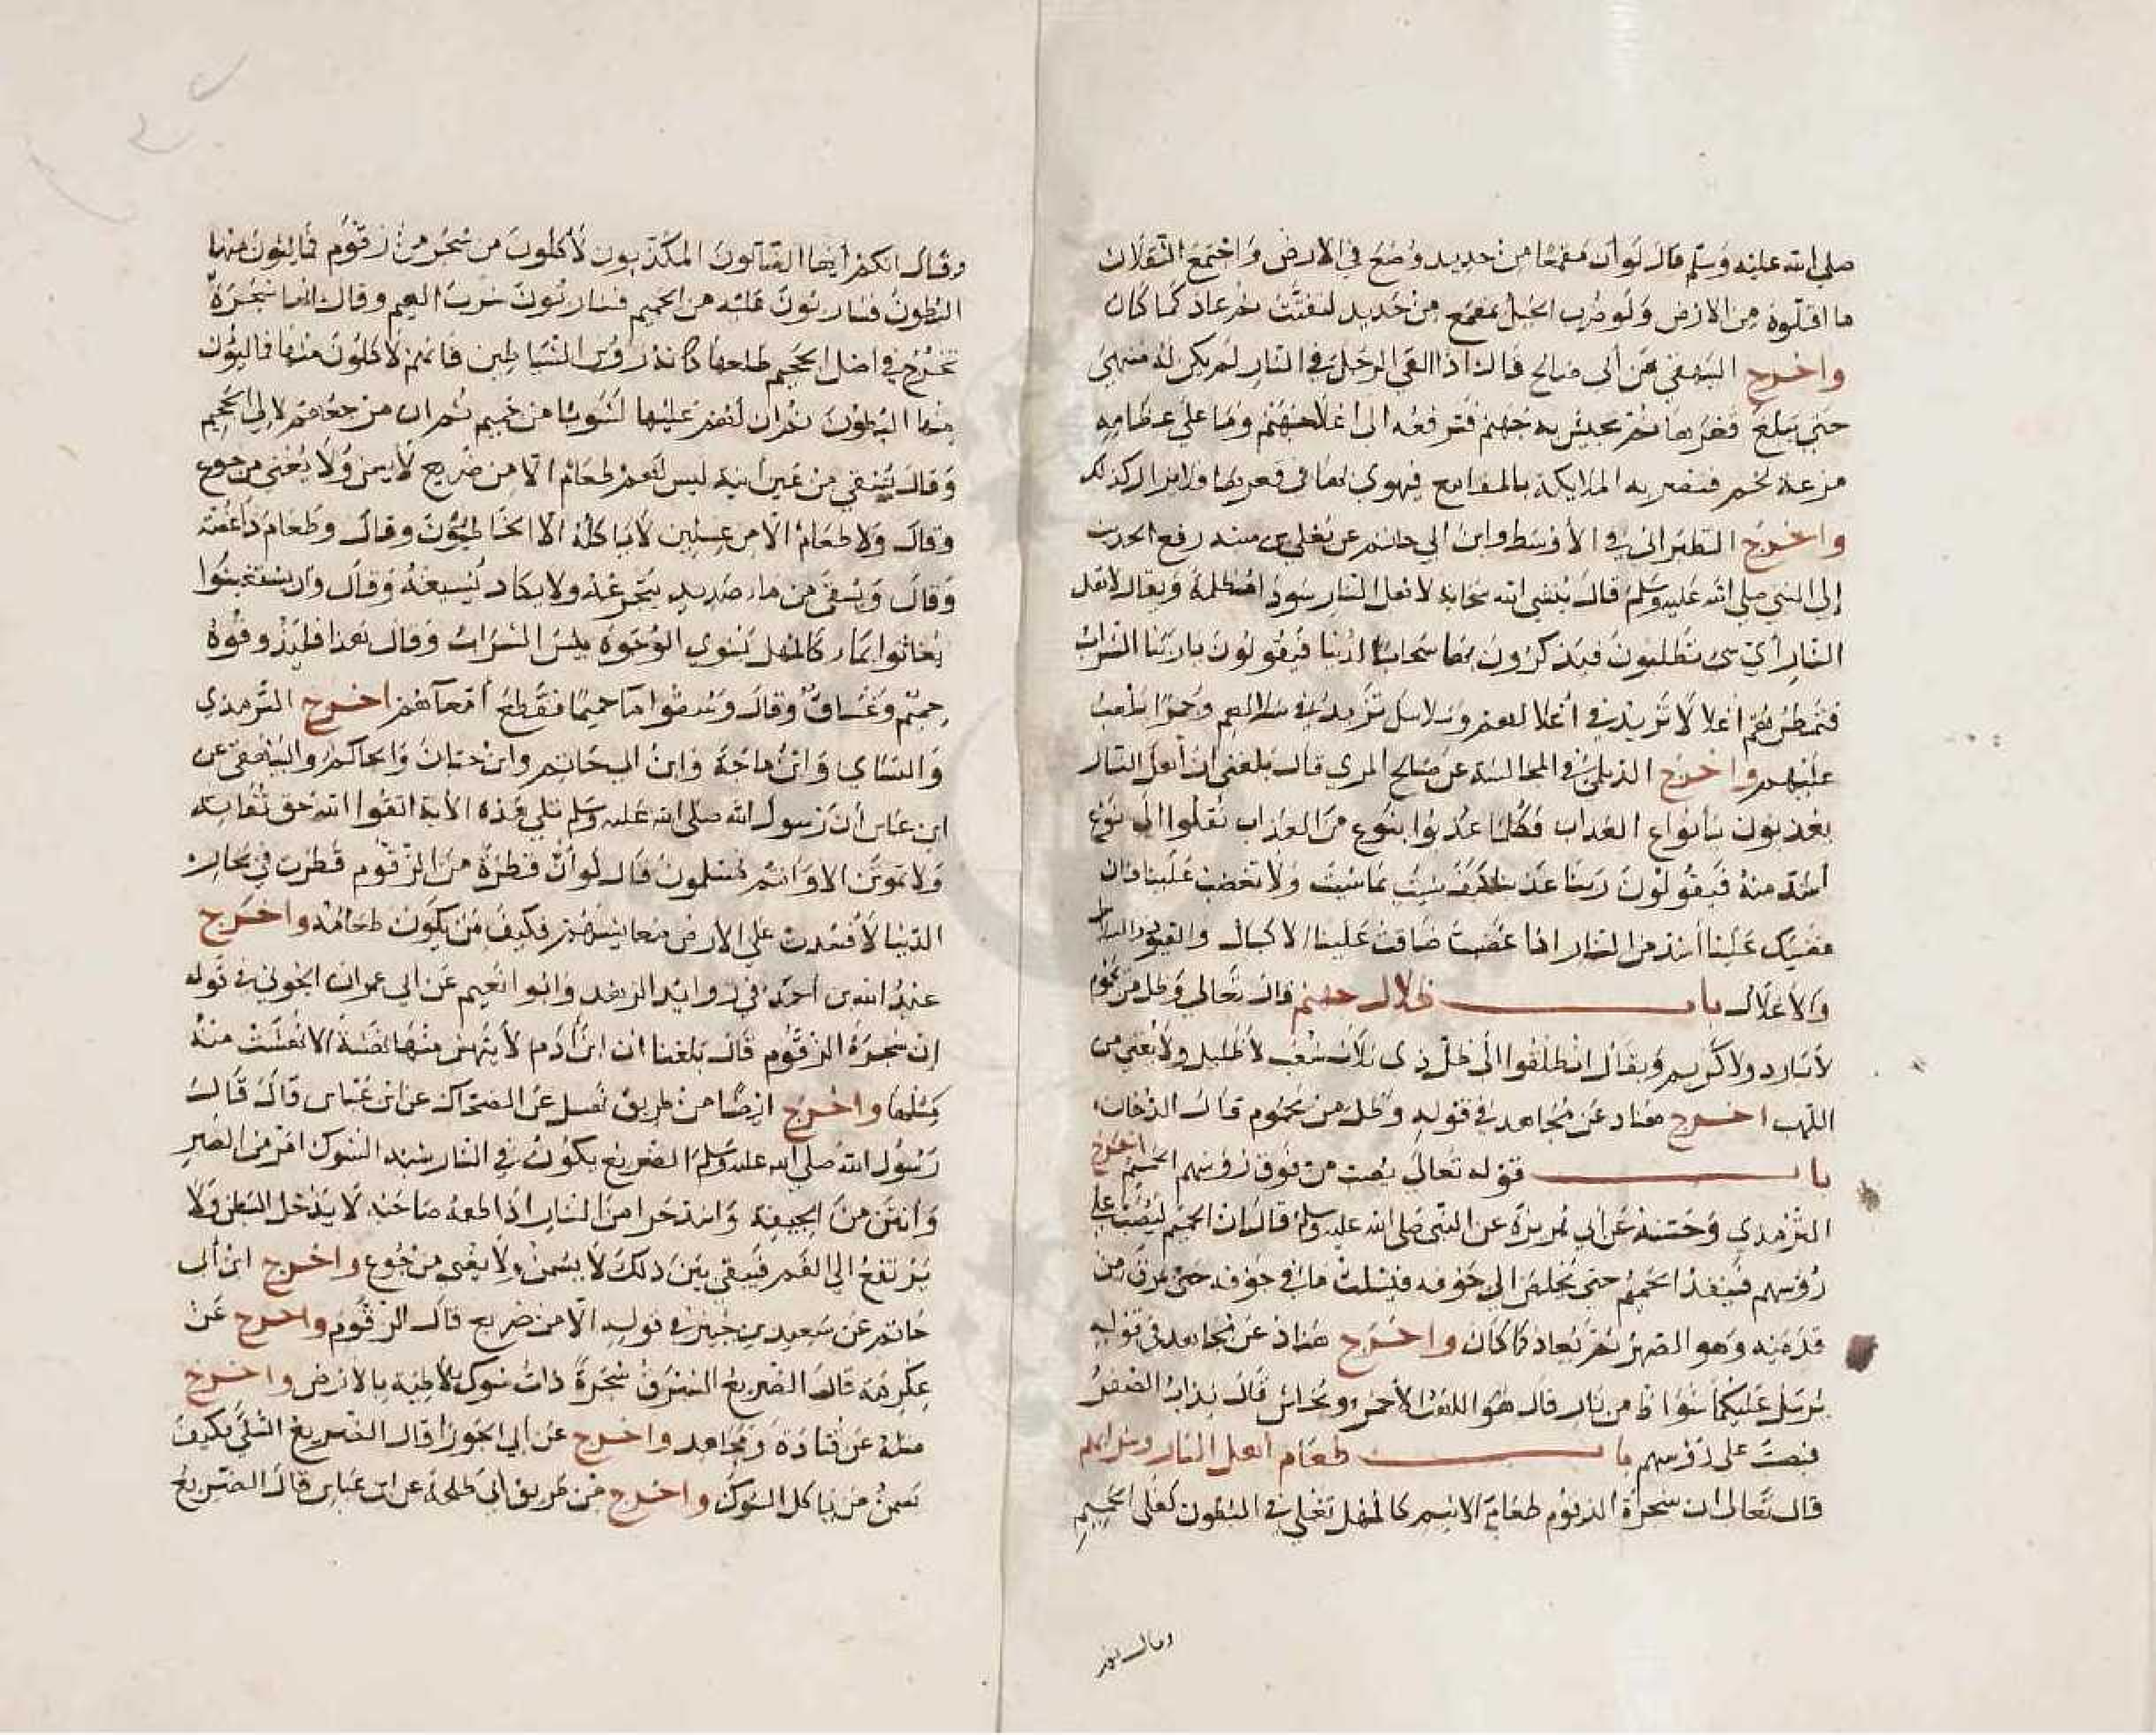 صلى الله عليه وسلم قال لو أن مقمعا من حديد وضع في الارض واجتمع الثقلان
ما اقلوه من الارض ولو ضرب الجبل بمقمع من حديد لتفتت ثم عاد كما كان
واخرج البيهقي عن أبي صالح قال اذا القي الرجل في النار لم يكن له منتهى
حتى يبلغ قعرها ثم تجيش به جهنم فترفعه الى اعلا جهنم وما على عظامه
مزعة لحم فتضربه الملايكة بالمقامع فيهوي بها في قعرها فلا يزال كذلك
واخرج الطبراني في الأوسط وابن ابي حاتم عن يعلى بن منيه رفع الحديث
إلى النبي صلى الله عليه وسلم قال ينشي الله سحابة لاهل النار سودا مظلمة ويقال لاهل
النار أي شي تطلبون فيذكرون بها سحاب الدنيا فيقولون يا ربنا الشراب
فتمطرهم اغلالا تزيد في اغلالهم وسلاسل تزيد في سلاسلهم وجمرا يلتهب
عليهم واخرج الدينوري في المجالسة عن صالح المري قال بلغني ان أهل النار
يعذبون بأنواع العذاب فكلما عذبوا بنوع من العذاب نقلوا الى نوع
أشد منه فيقولون ربنا عذبنا كيف شيت بما شيت ولا تغضب علينا فان
غضبك علينا أشد من النار اذا غضبت ضاقت علينا الاكبال والقيود والسلاسل
والاغلال باب ظلال جهنم قال تعالى وظل من يحموم
لا بارد ولا كريم ويقال انطلقوا الى ظل ذى ثلاث شعب لا ظليل ولا يغني من
اللهب اخرج هناد عن مجاهد في قوله وظل من يحموم قال الدخان
باب قوله تعالى يصب من فوق رؤسهم الحميم اخرج
الترمذي وحسنه عن أبي هريرة عن النبي صلى الله عليه وسلم قال ان الحميم ليصب على
رؤسهم فينفذ الحميم حتى يخلص الى جوفه فيسلت ما في جوفه حتى يمرق من
قدميه وهو الصهر ثم يعاد كما كان واخرج هناد عن مجاهد في قوله
يرسل عليكما شواظ من نار قال هو اللهب الأحمر ونحاس قال يذاب الصفر
فيصب على رؤسهم باب طعام أهل النار وشرابهم
قال تعالى ان شجرة الزقوم طعام الاثيم كالمهل تغلي في البطون كغلي الحميم
وقال انكم
وقال انكم أيها الضآلون المكذبون لآكلون من شجر من زقوم فمالئون منها
البطون فشاربون عليه من الحميم فشاربون شرب الهيم وقال انها شجرة
تخرج في اصل الجحيم طلعها كانه رؤس الشياطين فانهم لآكلون منها فماليؤن
منها البطون ثم ان لهم عليها لشوبا من حميم ثم ان مرجعهم لإلى الجحيم
وقال تسقى من عين آنية ليس لهم طعام الا من ضريع لا يسمن ولا يغني من جوع
وقال ولا طعام الا من غسلين لا يأكله الا الخاطيون وقال وطعام ذا غصة
وقال ويسقى من ماء صديد يتجرعه ولا يكاد يسيغه وقال وان يستغيثوا
يغاثوا بماء كالمهل يشوي الوجوه بيس الشراب وقال هذا فليذوقوه
حميم وغساق وقال وسقوا مآ حميما فقطع أمعآهم اخرج الترمذي
والنساي وابن ماجة وابن أبي حاتم وابن حبان والحاكم والبيهقي عن
ابن عباس أن رسول الله صلى الله عليه وسلم تلى هذه الآية اتقوا الله حق تقاته
ولا تموتن الا وانتم مسلمون قال لو أن قطرة من الزقوم قطرت في بحار
الدنيا لأفسدت على الارض معايشهم فكيف من يكون طعامه واخرج
عبد الله بن أحمد في زوايد الزهد وابو انعيم عن أبي عمران الجوني في قوله
إن شجرة الزقوم قال بلغنا ان ابن أدم لا ينهش منها نهشة الا نهشت منه
مثلها واخرج ايضا من طريق نهشل عن الضحاك عن ابن عباس قال قال
رسول الله صلى الله عليه وسلم الضريع يكون في النار شبه الشوك امر من الصبر
وانتن من الجيفة واشد حرا من النار اذا طعمه صاحبه لا يدخل البطن ولا
يرتفع إلى الفم فيبقى بين ذلك لا يسمن ولا يغني من جوع واخرج ابن أبي
حاتم عن سعيد بن جبير في قوله الا من ضريع قال الزقوم واخرج عن
عكرمة قال الضريع الشبرق شجرة ذات شوك لاطية بالارض واخرج
مثله عن قتادة ومجاهد واخرج عن أبي الجوزا قال الضريع السلى فكيف
يسمن من ياكل الشوك واخرج من طريق أبي طلحة عن ابن عباس قال الضريع